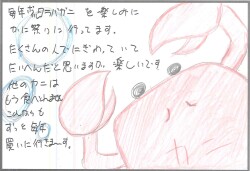 毎年花咲ガニ を 楽しみに
かに祭りに 行ってます。
たくさんの人でにぎわっていて
たいへんだと思いますが、楽しいです
他のカニは
もう食べれません
これからも
ずっと毎年
買いに行きまーす。